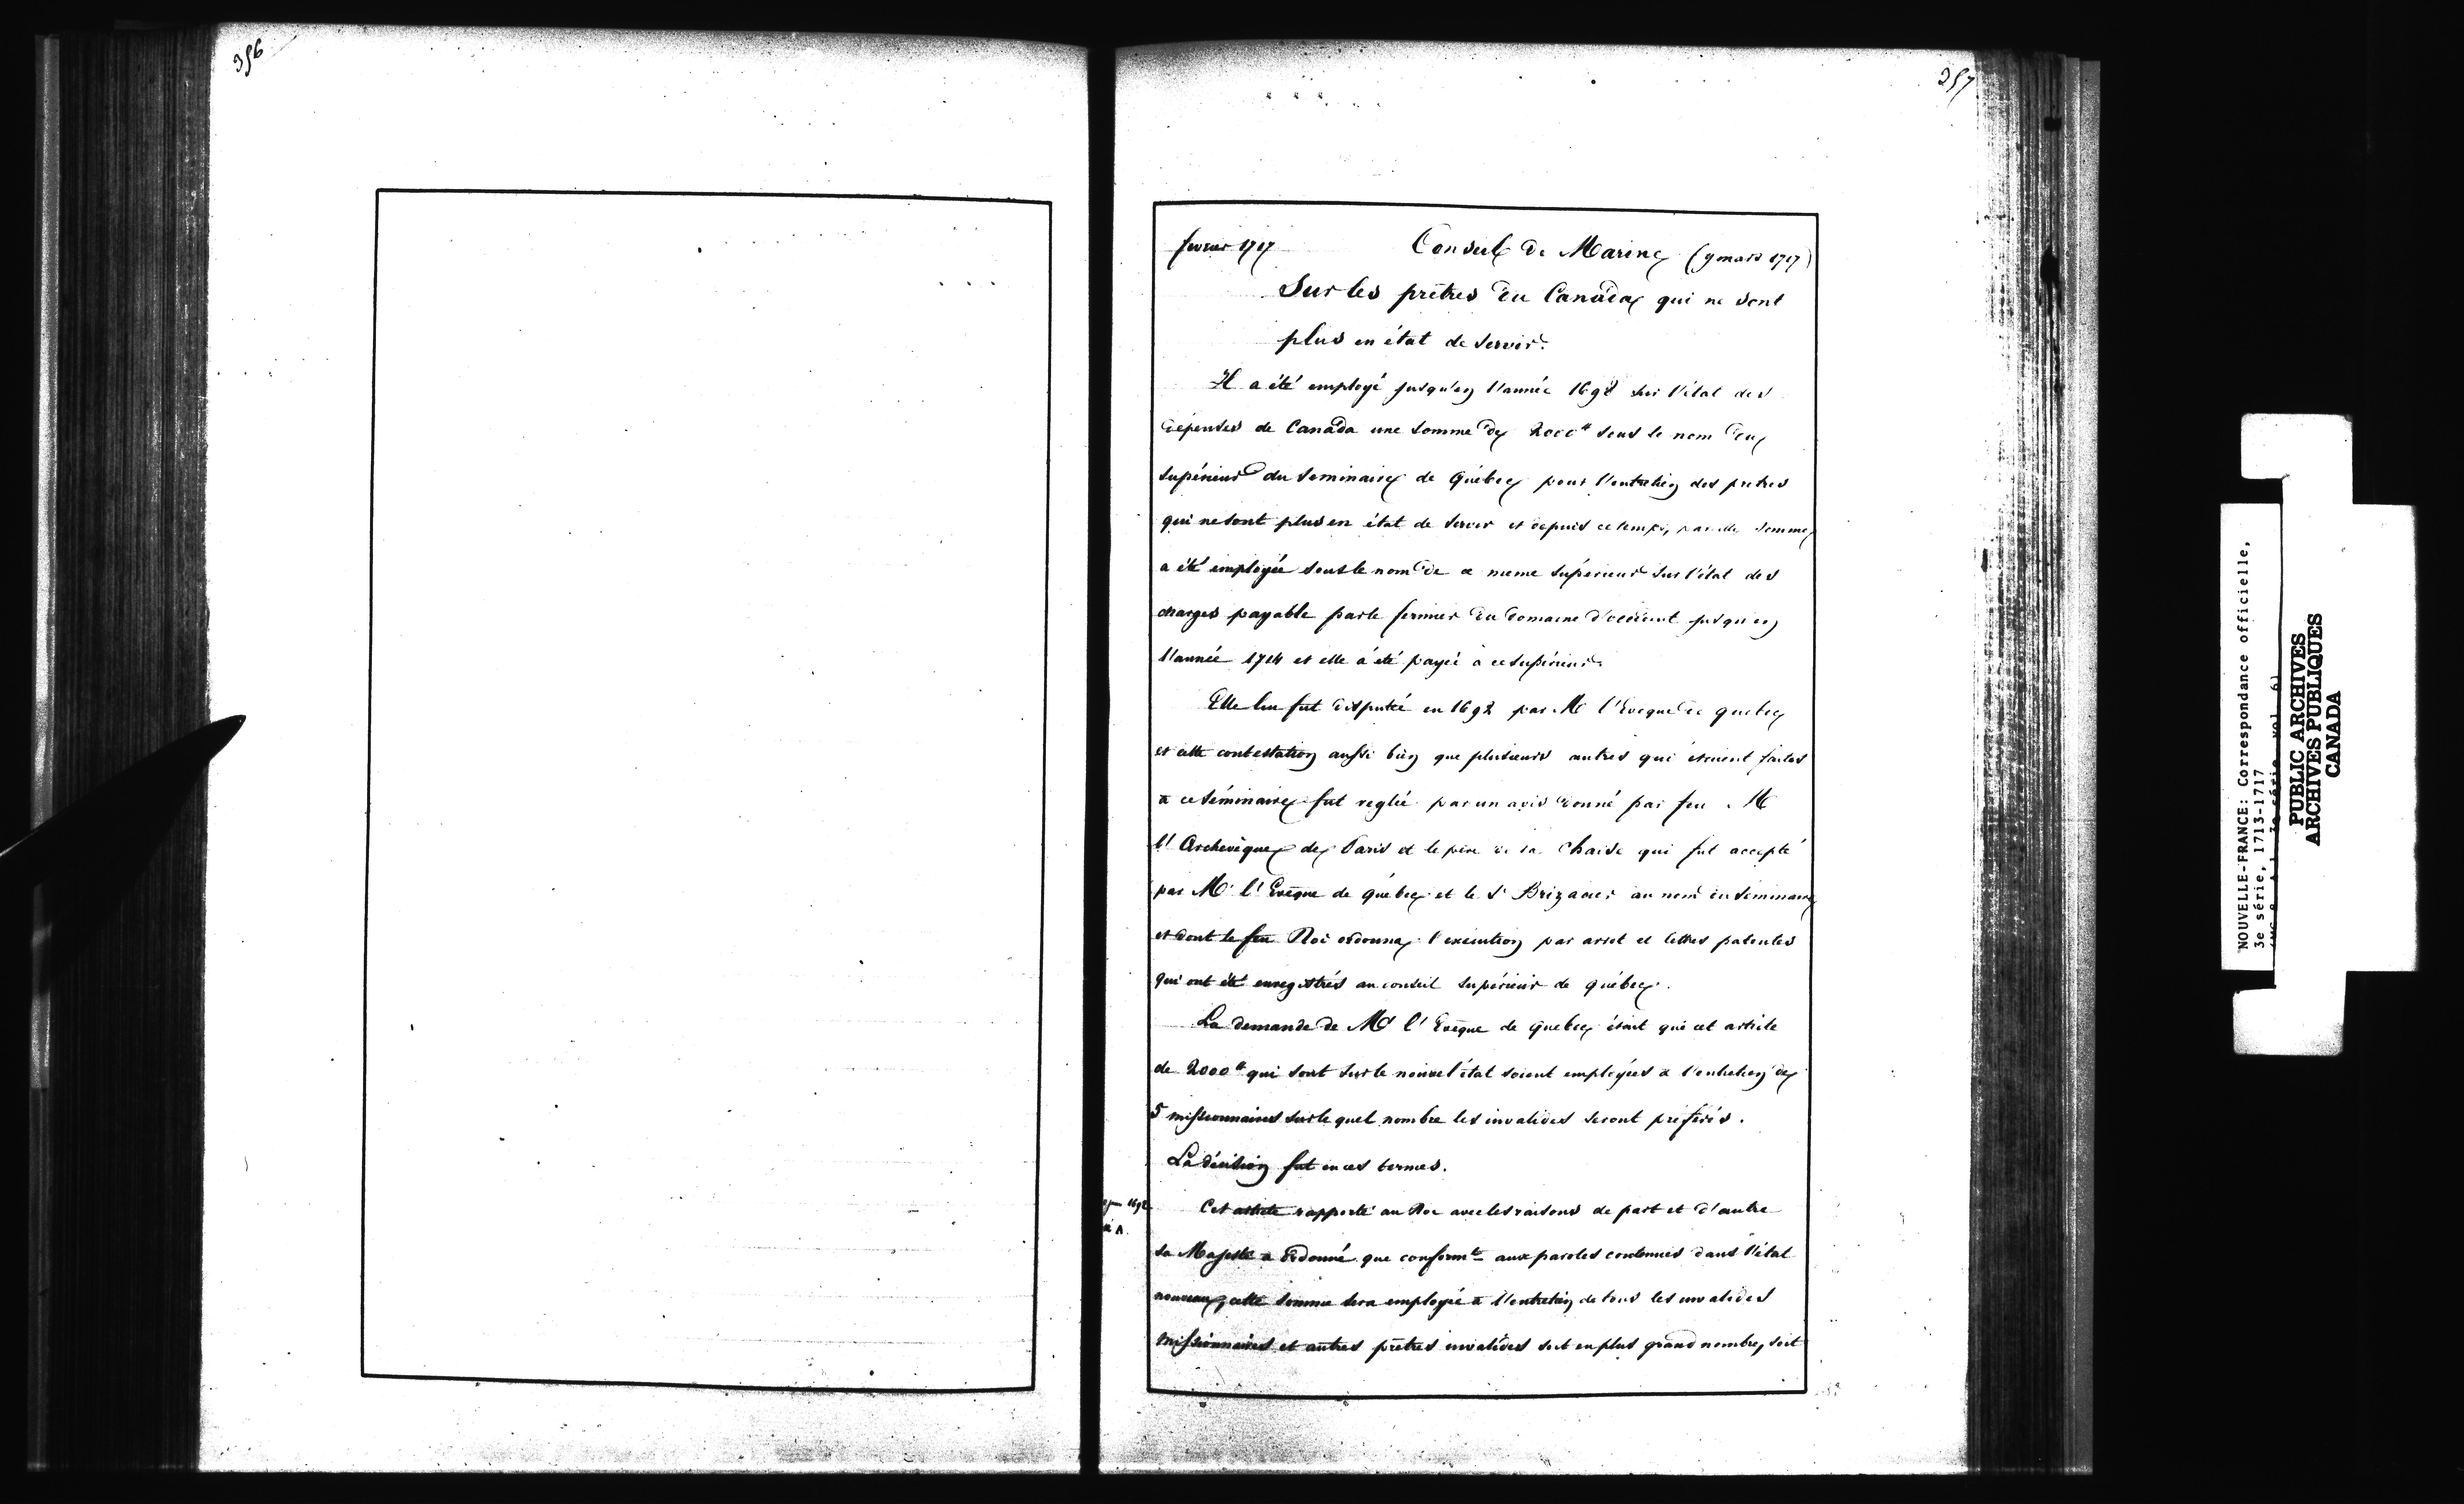 356
357
fevrier 1717 Conseil de Marine (9 mars 1717)
Sur les prêtres du Canada qui ne sont
plus en état de servir.
Il a été employé jusqu'en l'année 1698 sur l'état des
dépenses de Canada une somme de 2000# sous le nom du
supérieur du seminaire de Québec pour l'entretien des pretres
qui ne sont plus en état de servir et depuis ce temps, pareille somme
a été employée sous le nom de ce meme supérieur sur l'état des
charges payable par le fermier du domaine d'occident jusqu'en
l'année 1714 et elle a été payée à ce supérieur.
Elle lui fut disputée en 1692 par Mr l'Eveque de quebec
et cette contestation aussi bien que plusieurs autres qui étoient faites
à ce séminaire fut reglée par un avis donné par feu Mr
l'Archevêque de Paris et le père de la Chaise qui fut accepté
par Mr l'Evêque de québec et le Sr Brizacier au nom du seminaire
et dont le feu Roi ordonna l'execution par arret et lettres patentes
qui ont été enregistrés au conseil supérieur de québec.
La demande de Mr l'Evêque de quebec étoit que cet article
de 2000# qui sont sur le nouvel état soient employées à l'entretien de
5 missionnaires sur le quel nombre les invalides seront préférés.
La décision fut en ces termes.
1692 Cet article rapporté au Roi avec les raisons de part et d'autre
sa Majesté a ordonné que conformt aux paroles contenues dans l'état
nouveau, cette somme sera employée à l'entretien de tous les invalides
missionnaires et autres prêtres invalides soit en plus grand nombre, soit
NOUVELLE-FRANCE: Correspondance officielle,
3e série, 1713-1717
PUBLIC ARCHIVES
ARCHIVES PUBLIQUES
CANADA